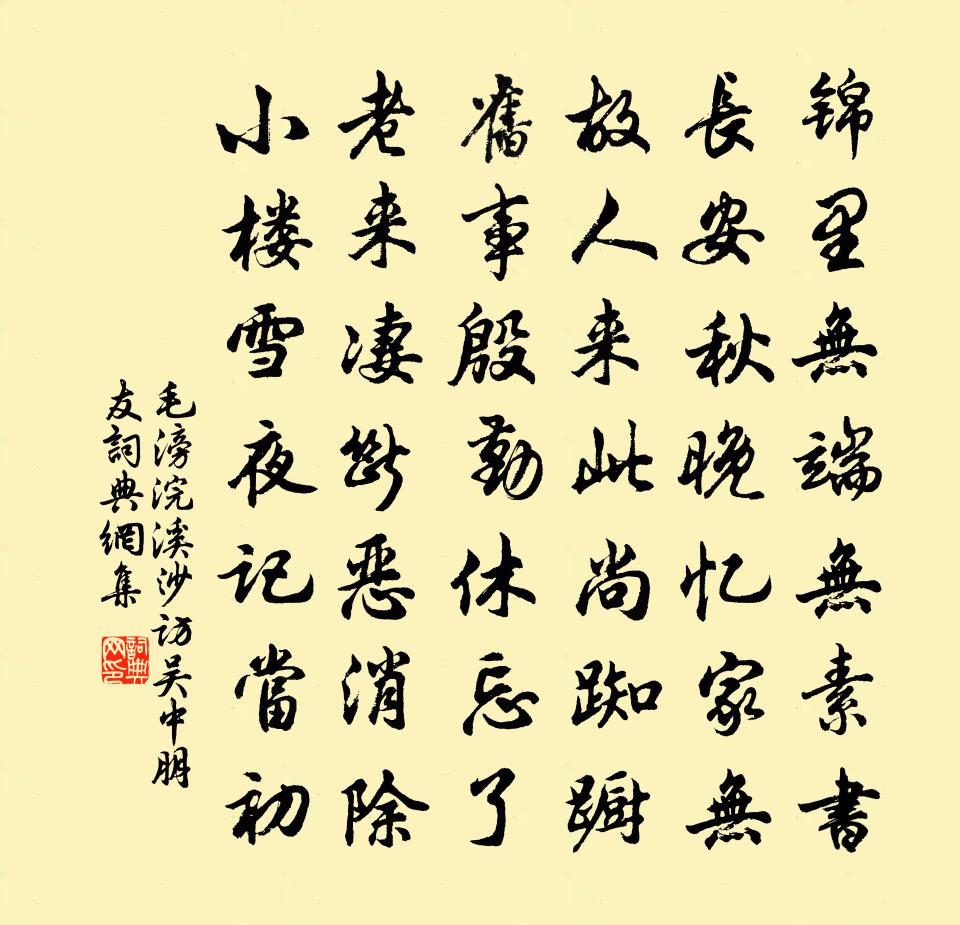 锦里無端無素書
長安秋晚忆家無
故人来此尚踟蹰
舊事殷勤休忘了
老来凄斷恶消除
小楼雪夜记當初
毛滂浣溪沙访吴中朋
友詞典網集
詞典网印